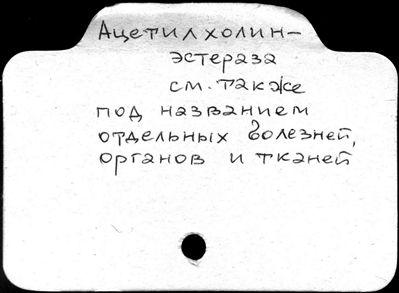 Ацетилхолин-
эстераза
см. также
под названием
отдельных болезней,
органов и тканей